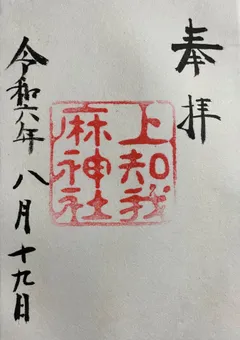 奉拝
上知我
麻神社
令和六年八月十九日